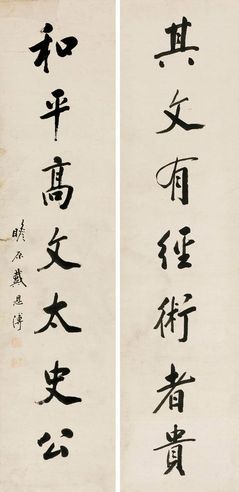 其文有經術者貴
和平高文太史公
瞻原戴恩溥